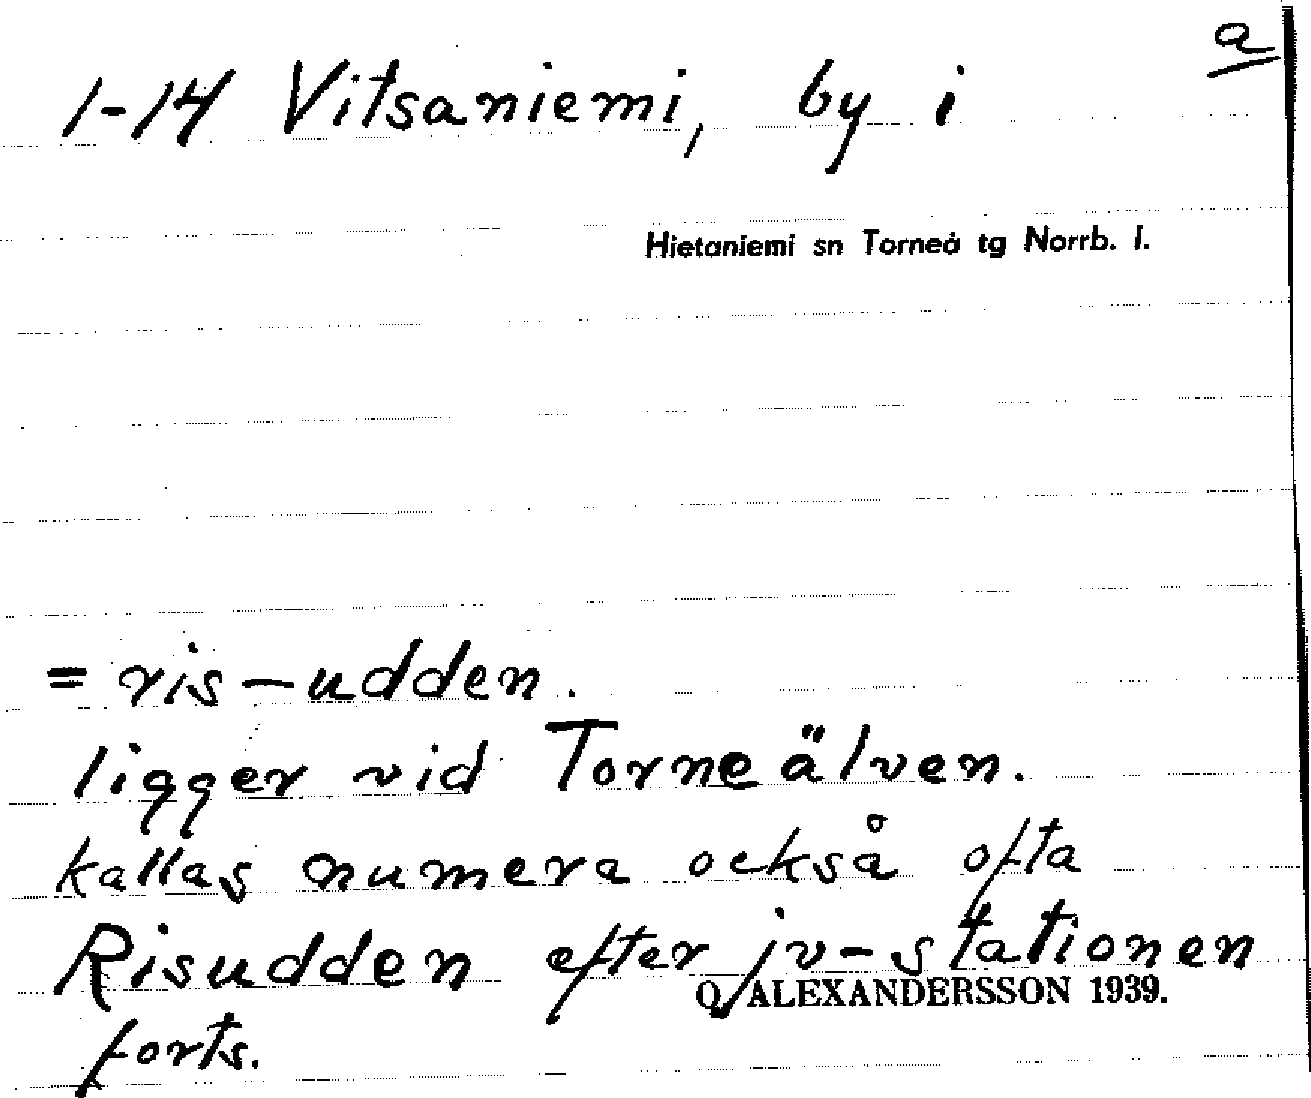 a
1-14 Vitsaniemi, by i
Hietaniemi sn Torneå tg Norrb. l.
= ris-udden.
ligger vid Torne älven.
kallas numera också ofta
Risudden efter jv-stationen
O. ALEXANDERSSON 1939.
forts.